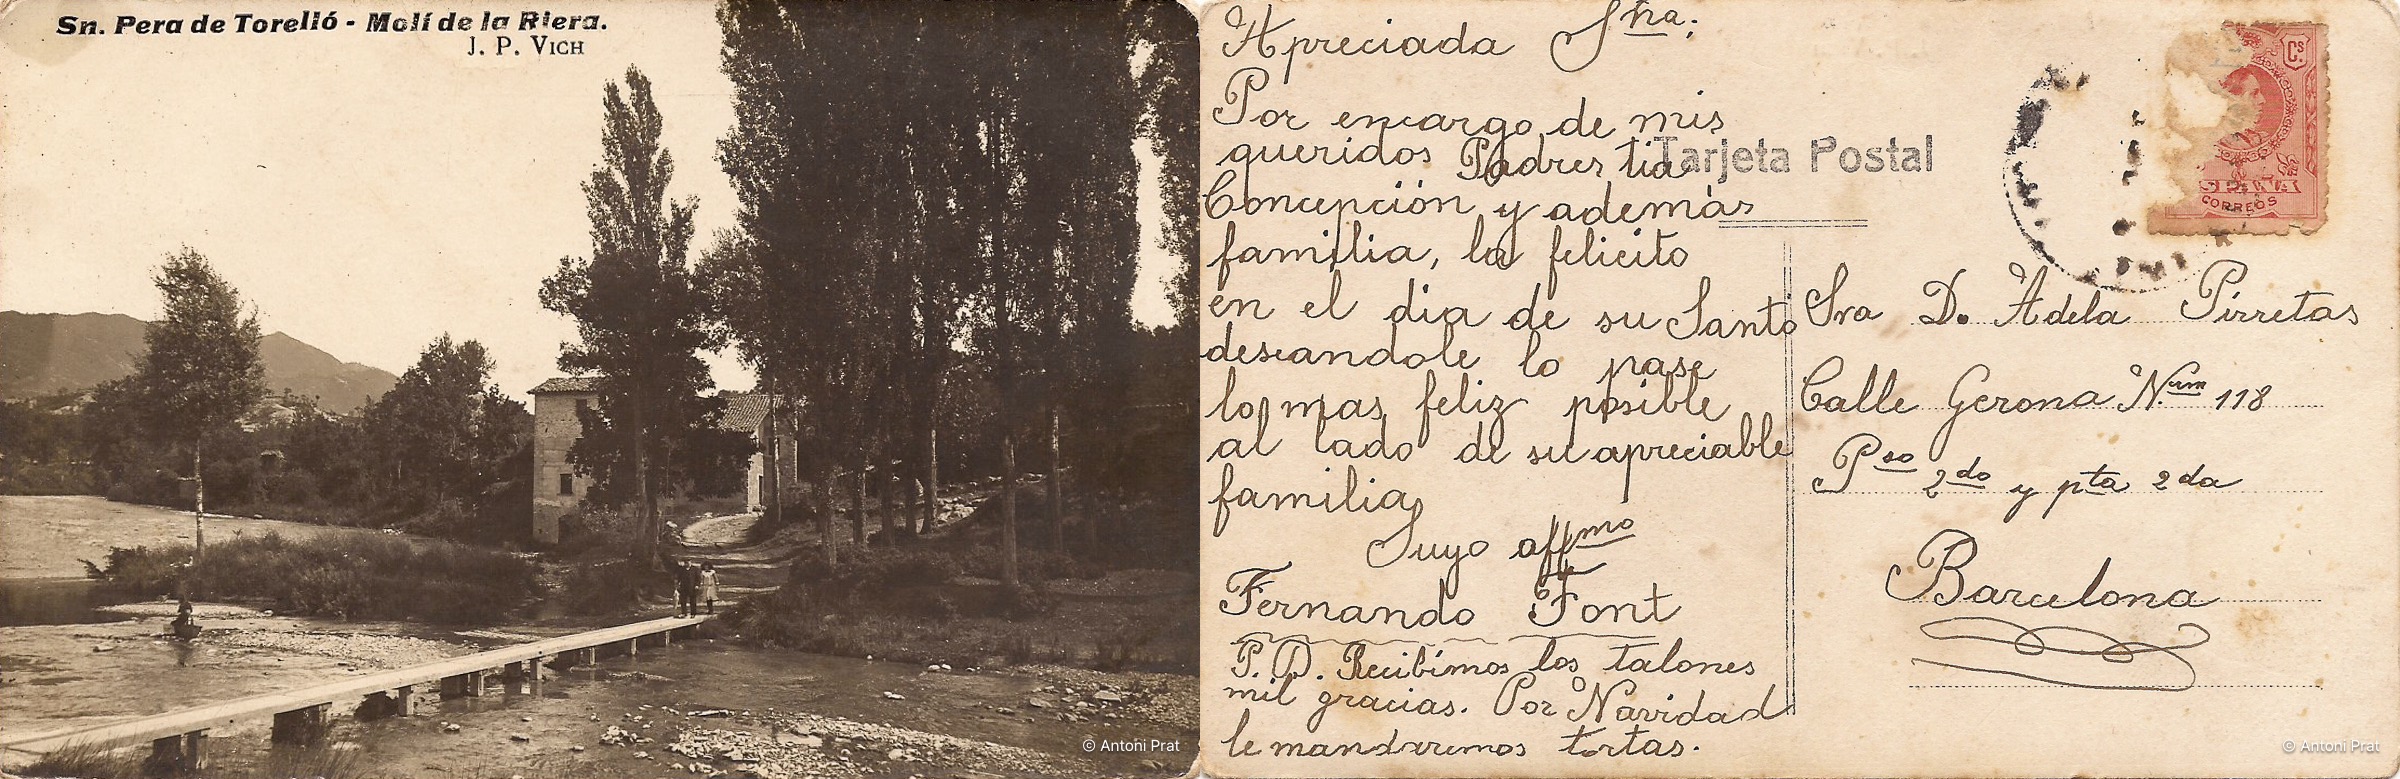 Sn. Pera de Torelló - Molí de la Riera.
J. P. VICH
© Antoni Prat
Apreciada Sra:
Por encargo de mis
queridos Padres tia
Concepción y ademàs
familia, la felicito
en el dia de su Santo
deseandole lo pase
lo mas feliz posible
al lado de su apreciable
familia
Suyo affmo
Fernando Font
P. D. Recibimos los talones
mil gracias. Por Navidad
le mandaremos tortas.
Tarjeta Postal
Cs.
ESPAÑA
CORREOS
Sra D. Adela Pirretas
Calle Gerona Núm 118
Pso 2do y pta 2da
Barcelona
© Antoni Prat